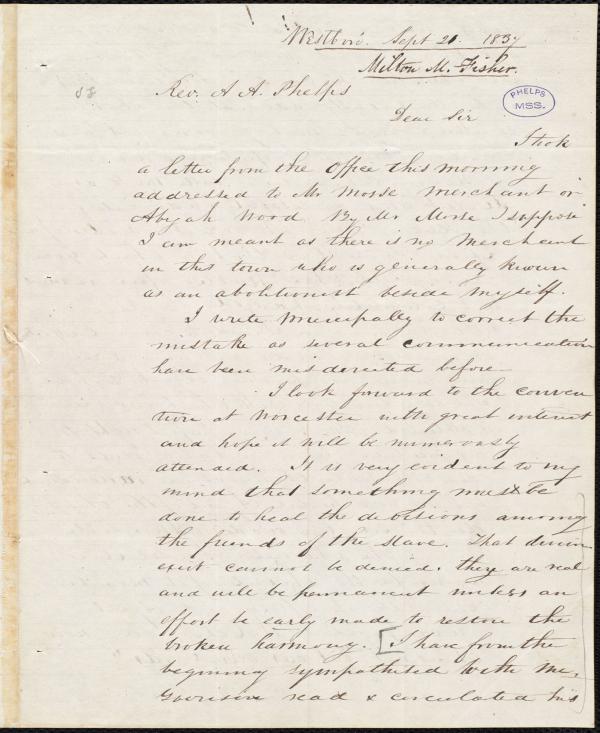 Westboro'. Sept 21. 1837
Milton M. Fisher.
Rev. A A. Phelps
PHELPS
MSS.
Dear Sir
I took
a letter from the Office this morning
addressed to Mr Morse Merchant or
Abijah Wood By Mr Morse I suppose
I am meant as there is no Merchant
in this town who is generally known
as an abolitionist beside myself.
I write principally to correct the
mistake as several communication
have been misdirected before—
I look forward to the conven
tion at Worcester with great interest
and hope it will be numerously
attended. It is very evident to my
mind that something must be
done to heal the divisions among
the friends of the slave. That
exist cannot be denied. they are real
and will be permanent unless an
effort be early made to restore the
broken harmony. [I have from the
beginning sympathised with Mr.
Garrison read & circulated his